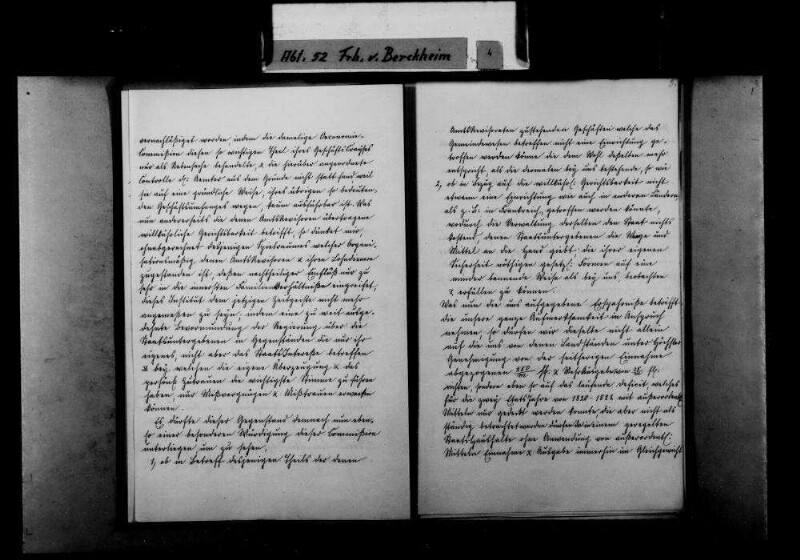 Abt. 52 Frh. v. Berckheim
4
vernachläßiget worden indem die damalige Oeconomie-
Commission diesen so wichtigen Theil ihres Geschäftskreises
nur als Nebensache behandelte, & die hierüber angeordnete
Controlle der Aemter aus dem Grunde nicht statt fand weil
sie auf eine gründliche Weise, ihres übrigen so bedeuten-
den Geschäftsumfanges wegen, kaum ausführbar ist. Was
nun andererseits die denen Amtsrevisoren übertragene
willkührliche Gerichtsbarkeit betrifft, so dünket mir,
ohnabgerechnet desjenigen Spielraumes welcher organi-
sationsmäßig denen Amtsrevisoren &
zugestanden ist, dessen nachtheiliger Einfluß nur zu
sehr in die innersten Familienverhältniße eingreifet,
dieses Institut dem jetzigen Zeitgeiste nicht mehr
angemessen zu seyn, indem eine zu weit ausge-
dehnte Bevormundung der Regierung über die
Staatsunterge­benen in Gegenständen die nur ihr
eigenes, nicht aber das Staats Interesse betreffen
& bey welchen die eigene Überzeugung & das
persönl: Zutrauen die wichtigste Stimme zu führen
haben, nur Mißvergnügen & Mißtrauen erwecken
können.
Es dürfte dieser Gegenstand demnach nun eben-
so einer besonderen Würdigung dieser Commission
unterliegen, um zu sehen,
1, ob in Betreff desjenigen Theils der denen
Amtsrevisoren zustehenden Geschäften welche das
Gemeindewesen betreffen nicht eine Einrichtung ge-
troffen werden könne die dem Wohl desselben mehr
entspricht, als die dermalen bey uns bestehende, so wie
2, ob in Bezug auf die willkührl: Gerichtsbarkeit nicht
etwann eine Einrichtung wie auch in anderen Ländern
als z. B. in Frankreich, getroffen werden könnte,
wodurch die Verwaltung derselben den Staat nichts
kostend, denen Staatsuntergebenen die Wege und
Mittel an die Hand giebt die ihrer eigenen
Sicherheit nöthigen gesetzl: Formen auf eine
minder lähmende Weise als bey uns, beobachten
& erfüllen zu können.
Was nun die uns aufgegebene Ersparniße betrifft
die unsere ganze Aufmerksamkeit in Anspruch
nehmen, so dürfen wir dieselbe nicht allein
auf die uns von denen Landständen unter Höchster
Genehmigung von der seitherigen Einnahme
abgezogenen
richten, sondern eben so auf das laufende deficit, welches
für die zwey Etats Jahre von 1820-1822 mit außerordentl:
Mitteln nur gedeckt werden konnte, die aber nicht als
ständig betrachtet werden dürfen bei einem geregelten
Staatshaushalte ohne Anwendung von außerordentl:
Mitteln Einnahme & Ausgabe immerhin im Gleichgewicht